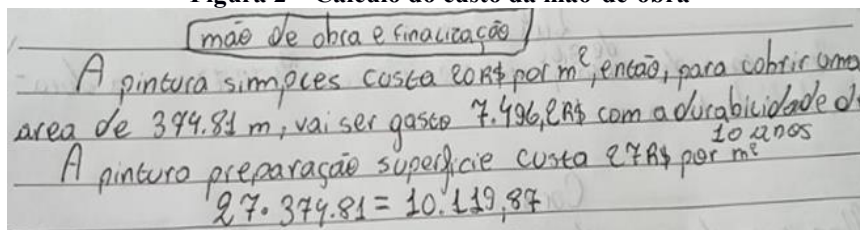 Figura 2 – Cálculo do custo da mão de obra
mão de obra e finalização
A pintura simples custa 20R$ por m², então, para cobrir uma
area de 374.81 m, vai ser gasto 7.496,2R$ com a durabilidade de
10 anos
A pintura preparação superficie custa 27R$ por m²
27. 374.81 = 10.119,87